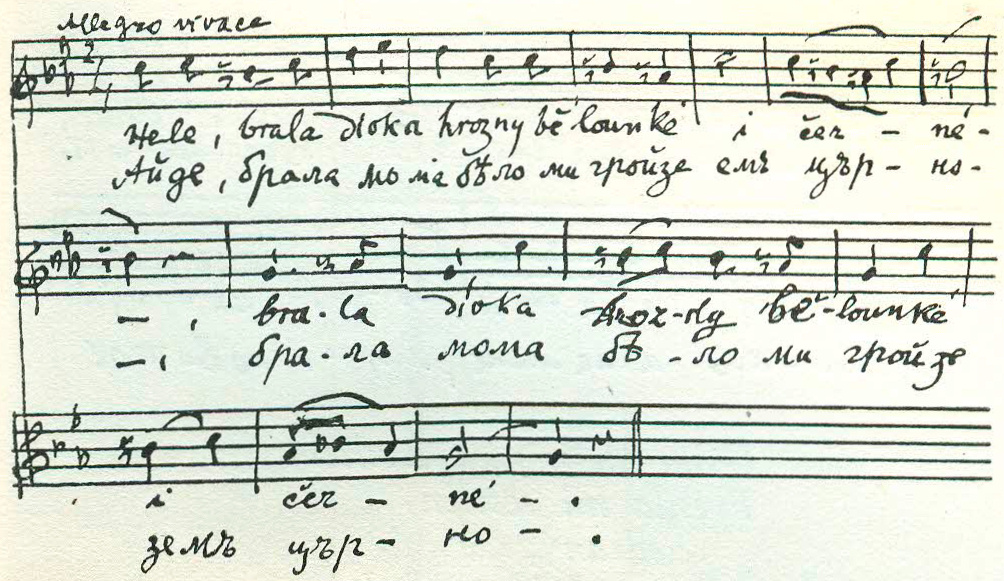 Allegro vivace
Hele, brala dioka hrozny bělounké i čer - né -
Айде, брала мома бѣло ми гройзе емъ църно -
- , bra - la dioka hroz-ny bě-lounké
- , бра - ла мома бѣ - ло ми гройзе
i čer - né - .
земъ цър - но - .